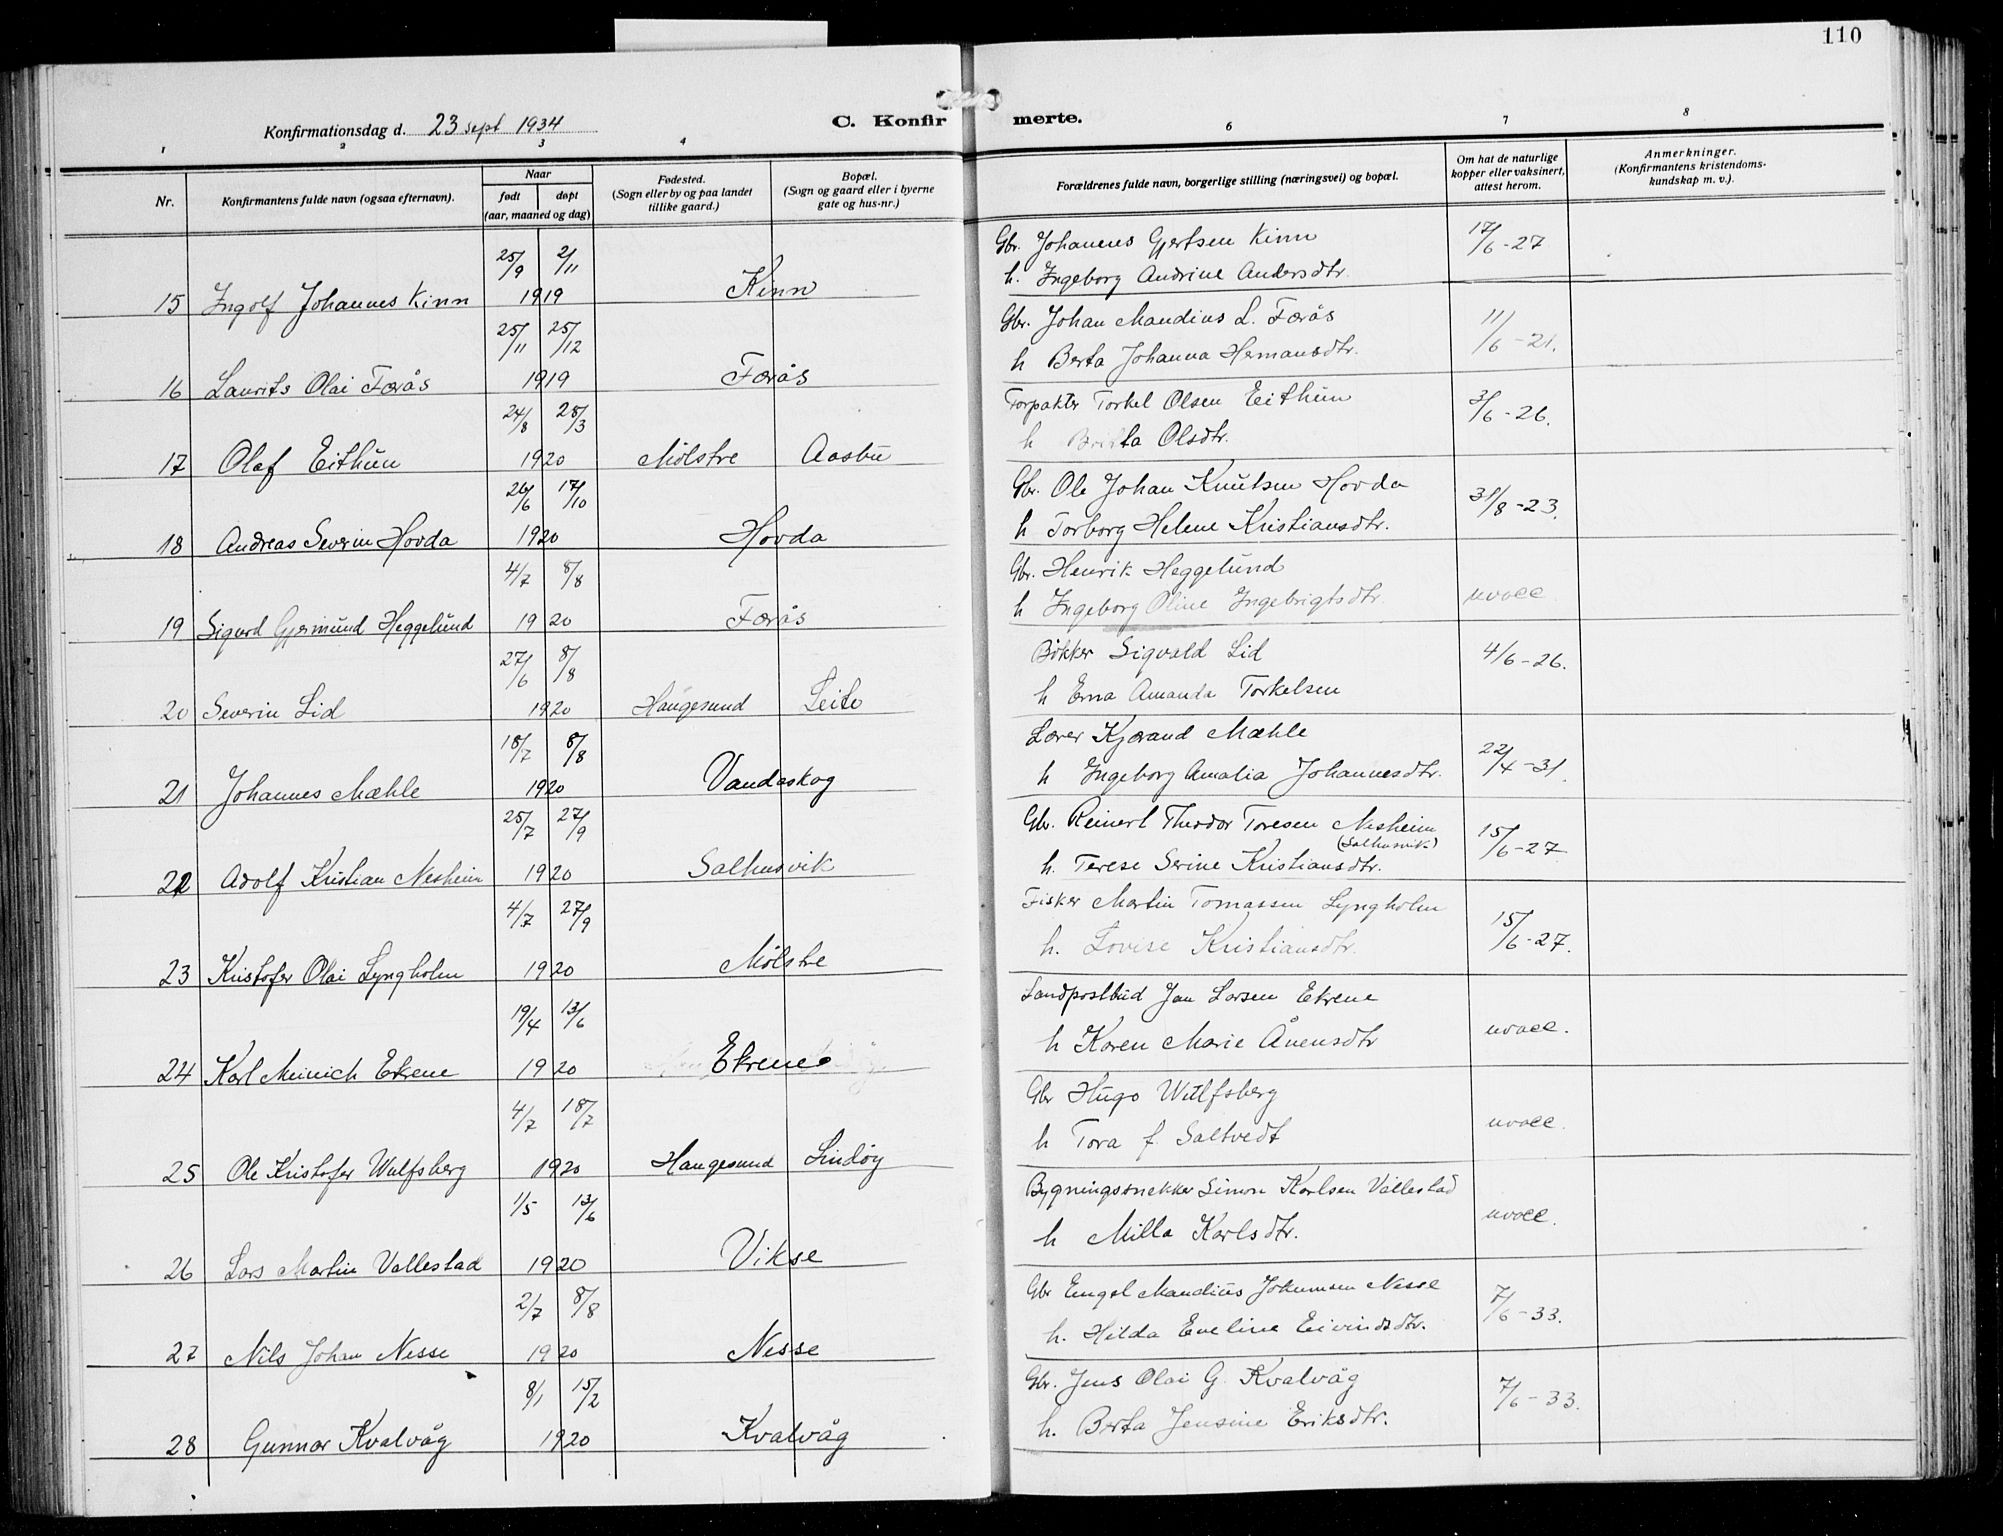 110
Konfirmationsdag d. 23 sept 1934
C. Konfirmerte.
1 2 3 4 6 7 8
Nr.
Konfirmantens fulde navn (ogsaa efternavn).
Naar
født døpt
(aar, maaned og dag)
Fødested.
(Sogn eller by og paa landet
tillike gaard.)
Bopæl.
(Sogn og gaard eller i byerne
gate og hus-nr.)
Forældrenes fulde navn, borgerlige stilling (næringsvei) og bopæl.
Om hat de naturlige
kopper eller vaksinert,
attest herom.
Anmerkninger.
(Konfirmantens kristendoms-
kundskap m. v.).
25/9 2/11 Gbr. Johannes Gjertsen Kinn 17/6-27
15 Ingolf Johannes Kinn 1919 Kinn h. Ingeborg Andrine Andersdtr.
25/11 25/12 Gbr. Johan Mandius L. Færås 11/6-21.
16 Laurits Olai Færås 1919 Færås h Berta Johanna Hemansdtr.
24/8 28/3 Forpakter Torkel Olsen Eithun 3/6-26.
17 Olaf Eithun 1920 Mølstre Aasbu h Britta Olsdtr.
26/6 17/10 Gbr. Ole Johan Knutsen Hovda 31/8-23.
18 Andreas Severin Hovda 1920 Hovda h Torborg Helene Kristiansdtr.
4/7 8/8 Gbr. Henrik Heggelund uvacc.
19 Sigurd Gjermund Heggelund 1920 Færås h Ingeborg Oline Ingebrigtsdtr.
27/6 8/8 Bøkker Sigvald Lid 4/6-26.
20 Severin Lid 1920 Haugesund Leite h Erna Amanda Torkelsen
18/7 8/8 Lærer Kjærand Mæhle 22/4-31.
21 Johannes Mæhle 1920 Vandaskog h Ingeborg Amalia Johannesdtr.
25/7 27/9 Gbr. Reinert Theodor Toresen Nesheim 15/6-27
(Salhusvik)
22 Adolf Kristian Nesheim 1920 Salhusvik h. Terese Serine Kristiansdtr.
4/7 27/9 Fisker Martin Tomassen Lyngholm 15/6-27.
23 Kristofer Olai Lyngholm 1920 Mølstre h. Lovise Kristiansdtr.
19/4 13/6 Landpostbud Jan Larsen Ekrene uvacc.
24 Karl Meinich Ekrene 1920 Ekrene h Karen Marie Ånensdtr
4/7 18/7 Gbr Hugo Wulfsberg uvacc.
25 Ole Kristofer Wulfsberg 1920 Haugesund Lindøy h Tora f. Saltvedt
1/5 13/6 Bygningssnekker Simon Karlsen Vallestad uvacc.
26 Lars Martin Vallestad 1920 Vikse h Milla Karlsdtr.
2/7 8/8 Gbr Engel Mandius Jokumsen Nesse 7/6-33.
27 Nils Johan Nesse 1920 Nesse h. Hilda Eveline Eivindsdtr.
8/1 15/2 Gbr. Jens Olai G. Kvalvåg 7/6-33.
28 Gunnar Kvalvåg 1920 Kvalvåg h. Berta Jensine Eriksdtr.